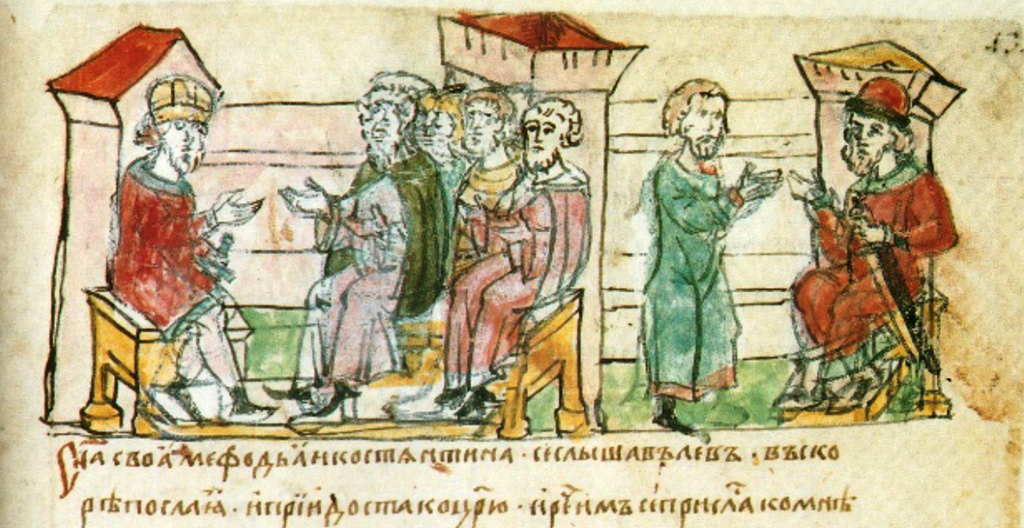 сн҃а своꙗ мефодьꙗ и костѧнтина · се слышавъ левъ · въско
рѣ посла ꙗ · и приидоста ко цр҃ю · и реч҃ има се присла ко мнѣ